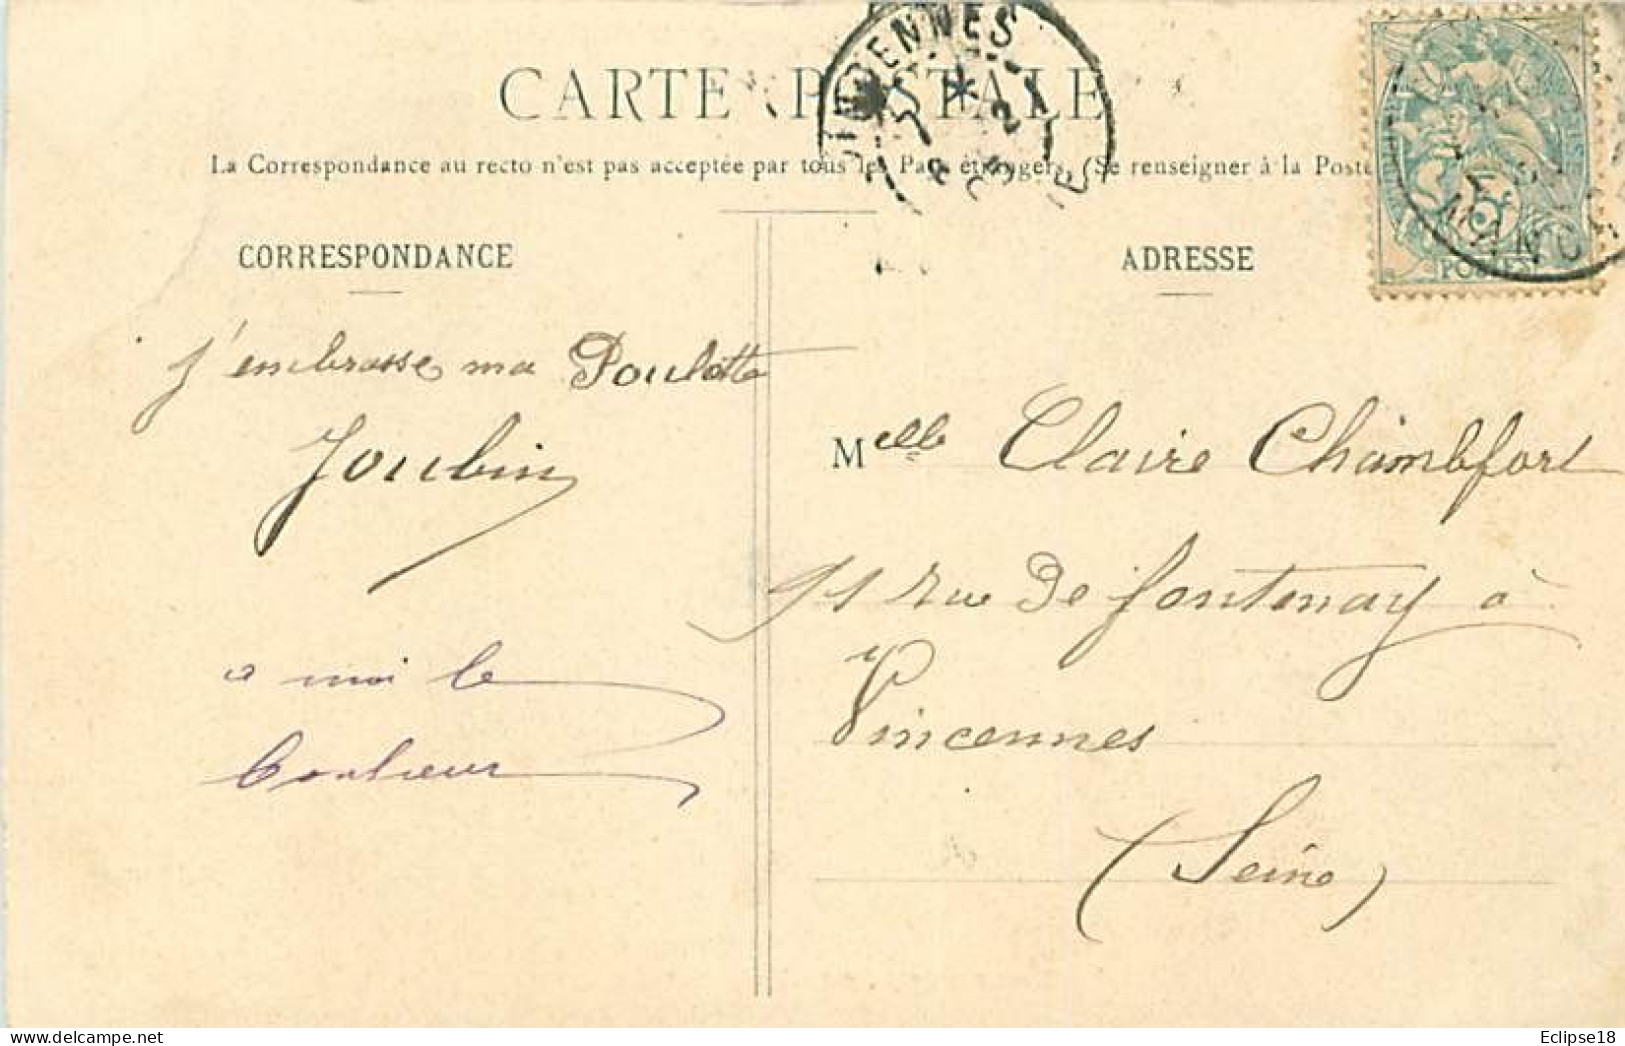 CARTE POSTALE
La Correspondance au recto n'est pas acceptée par tous les Pays étrangers. (Se renseigner à la Poste
VINCENNES
POSTES
CORRESPONDANCE
j'embrasse ma Poulette
Joubin
a moi le
bonheur
ADRESSE
Melle Claire Chambfort
rue De fontenay à
Vincennes
(Seine)
Eclipse18